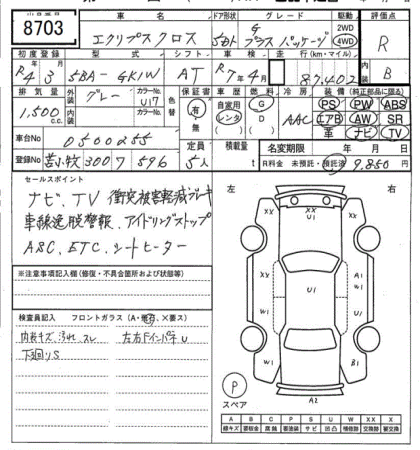 8703
車名 ドア形状 グレード 駆動 評価点
エクリプス クロス 5Dr G プラス パッケージ 2WD 4WD R
初度登録 型式 シフト 車検 走行(km・マイル) 内装
R4 3 5BA-GK1W AT R7年4月 87,402 B
排気量 外装 カラーNo. 色替 保証書 車歴 燃料 冷房 装備(純正部品に限る)
1,500 c.c. グレー U17 有 無 自家用 レンタ G D AAC PS PW ABS
内装 カラーNo. エアB AW SR
革 ナビ TV
車台No 0500255 定員 積載量 名変期限 年 月 日
登録No 苫小牧 300 ワ 596 5人 t R料金 未預託・預託済 9,850円
セールスポイント
ナビ、TV 衝突被害軽減ブレーキ
車線逸脱警報、アイドリングストップ
ASC、ETC、シートヒーター
※注意事項記入欄(修復・不具合箇所および状態等)
検査員記入 フロントガラス(A・無・有・×要ス)
内装キズ、汚れ、スレ 左右FインパネU
下廻りS
左 右
XX XX XX
U1
W1 U1 A1
W1
W1 W1 B1
P
スペア A2
A B C P S U W X XX
線キズ 腐蝕 サビ 凹凸 補修跡 要交換 交換済